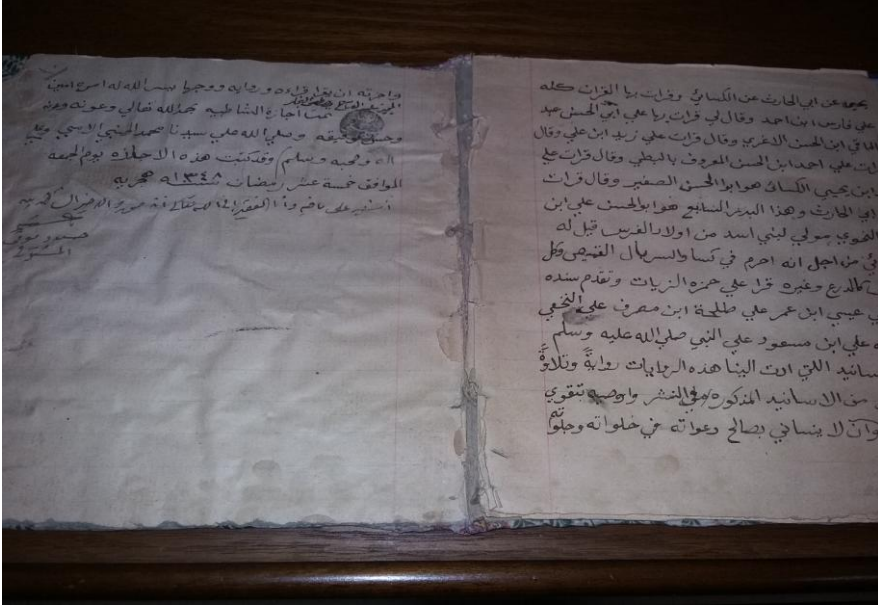 بجميعه عن ابي الحارث عن الكسائي وقرات بها القران كله
علي فارس ابن احمد وقال لي قرات بها علي ابي الحسن عبد
الباقي ابن الحسن وقال قرات علي زيد ابن علي وقال
قرات علي احمد ابن الحسن المعروف بالبطي وقال قرات علي
ابن يحيي الكسائي هو ابو الحسن الصغير وقال قرات
ابي الحارث وهذا البدر السابع هو ابو الحسن علي ابن
النحوي مولي لبني اسد من اولاد الفرس قيل له
من اجل انه احرم في كساء والسربال القميص وكل
كالدرع وغيره قرا علي حمزه الزيات وتقدم سنده
عيسي ابن عمر علي طلحة ابن مصرف علي النخعي
علي ابن مسعود علي النبي صلي الله عليه وسلم
اللتي ادت الينا هذه الروايات روايةً وتلاوةً
من الاسانيد المذكوره في النشر واوصيه بتقوي
وان لا ينساني بصالح دعواته في خلواته وجلواته
واجزته ان يقرا قراءه وروايه ووجها يسر الله له امره امين
تمت اجازة الشاطبيه بحمد الله تعالي وعونه
وحسن توفيقه وصلي الله علي سيدنا محمد النبي الامي وعلي
اله وصحبه وسلم وقد كتبت هذه الاجازه يوم الجمعه
الموافق خمسة عشر رمضان سنة ١٣٤٨ هجريه
علي ما فيه وانا الفقير الي الله تعالي